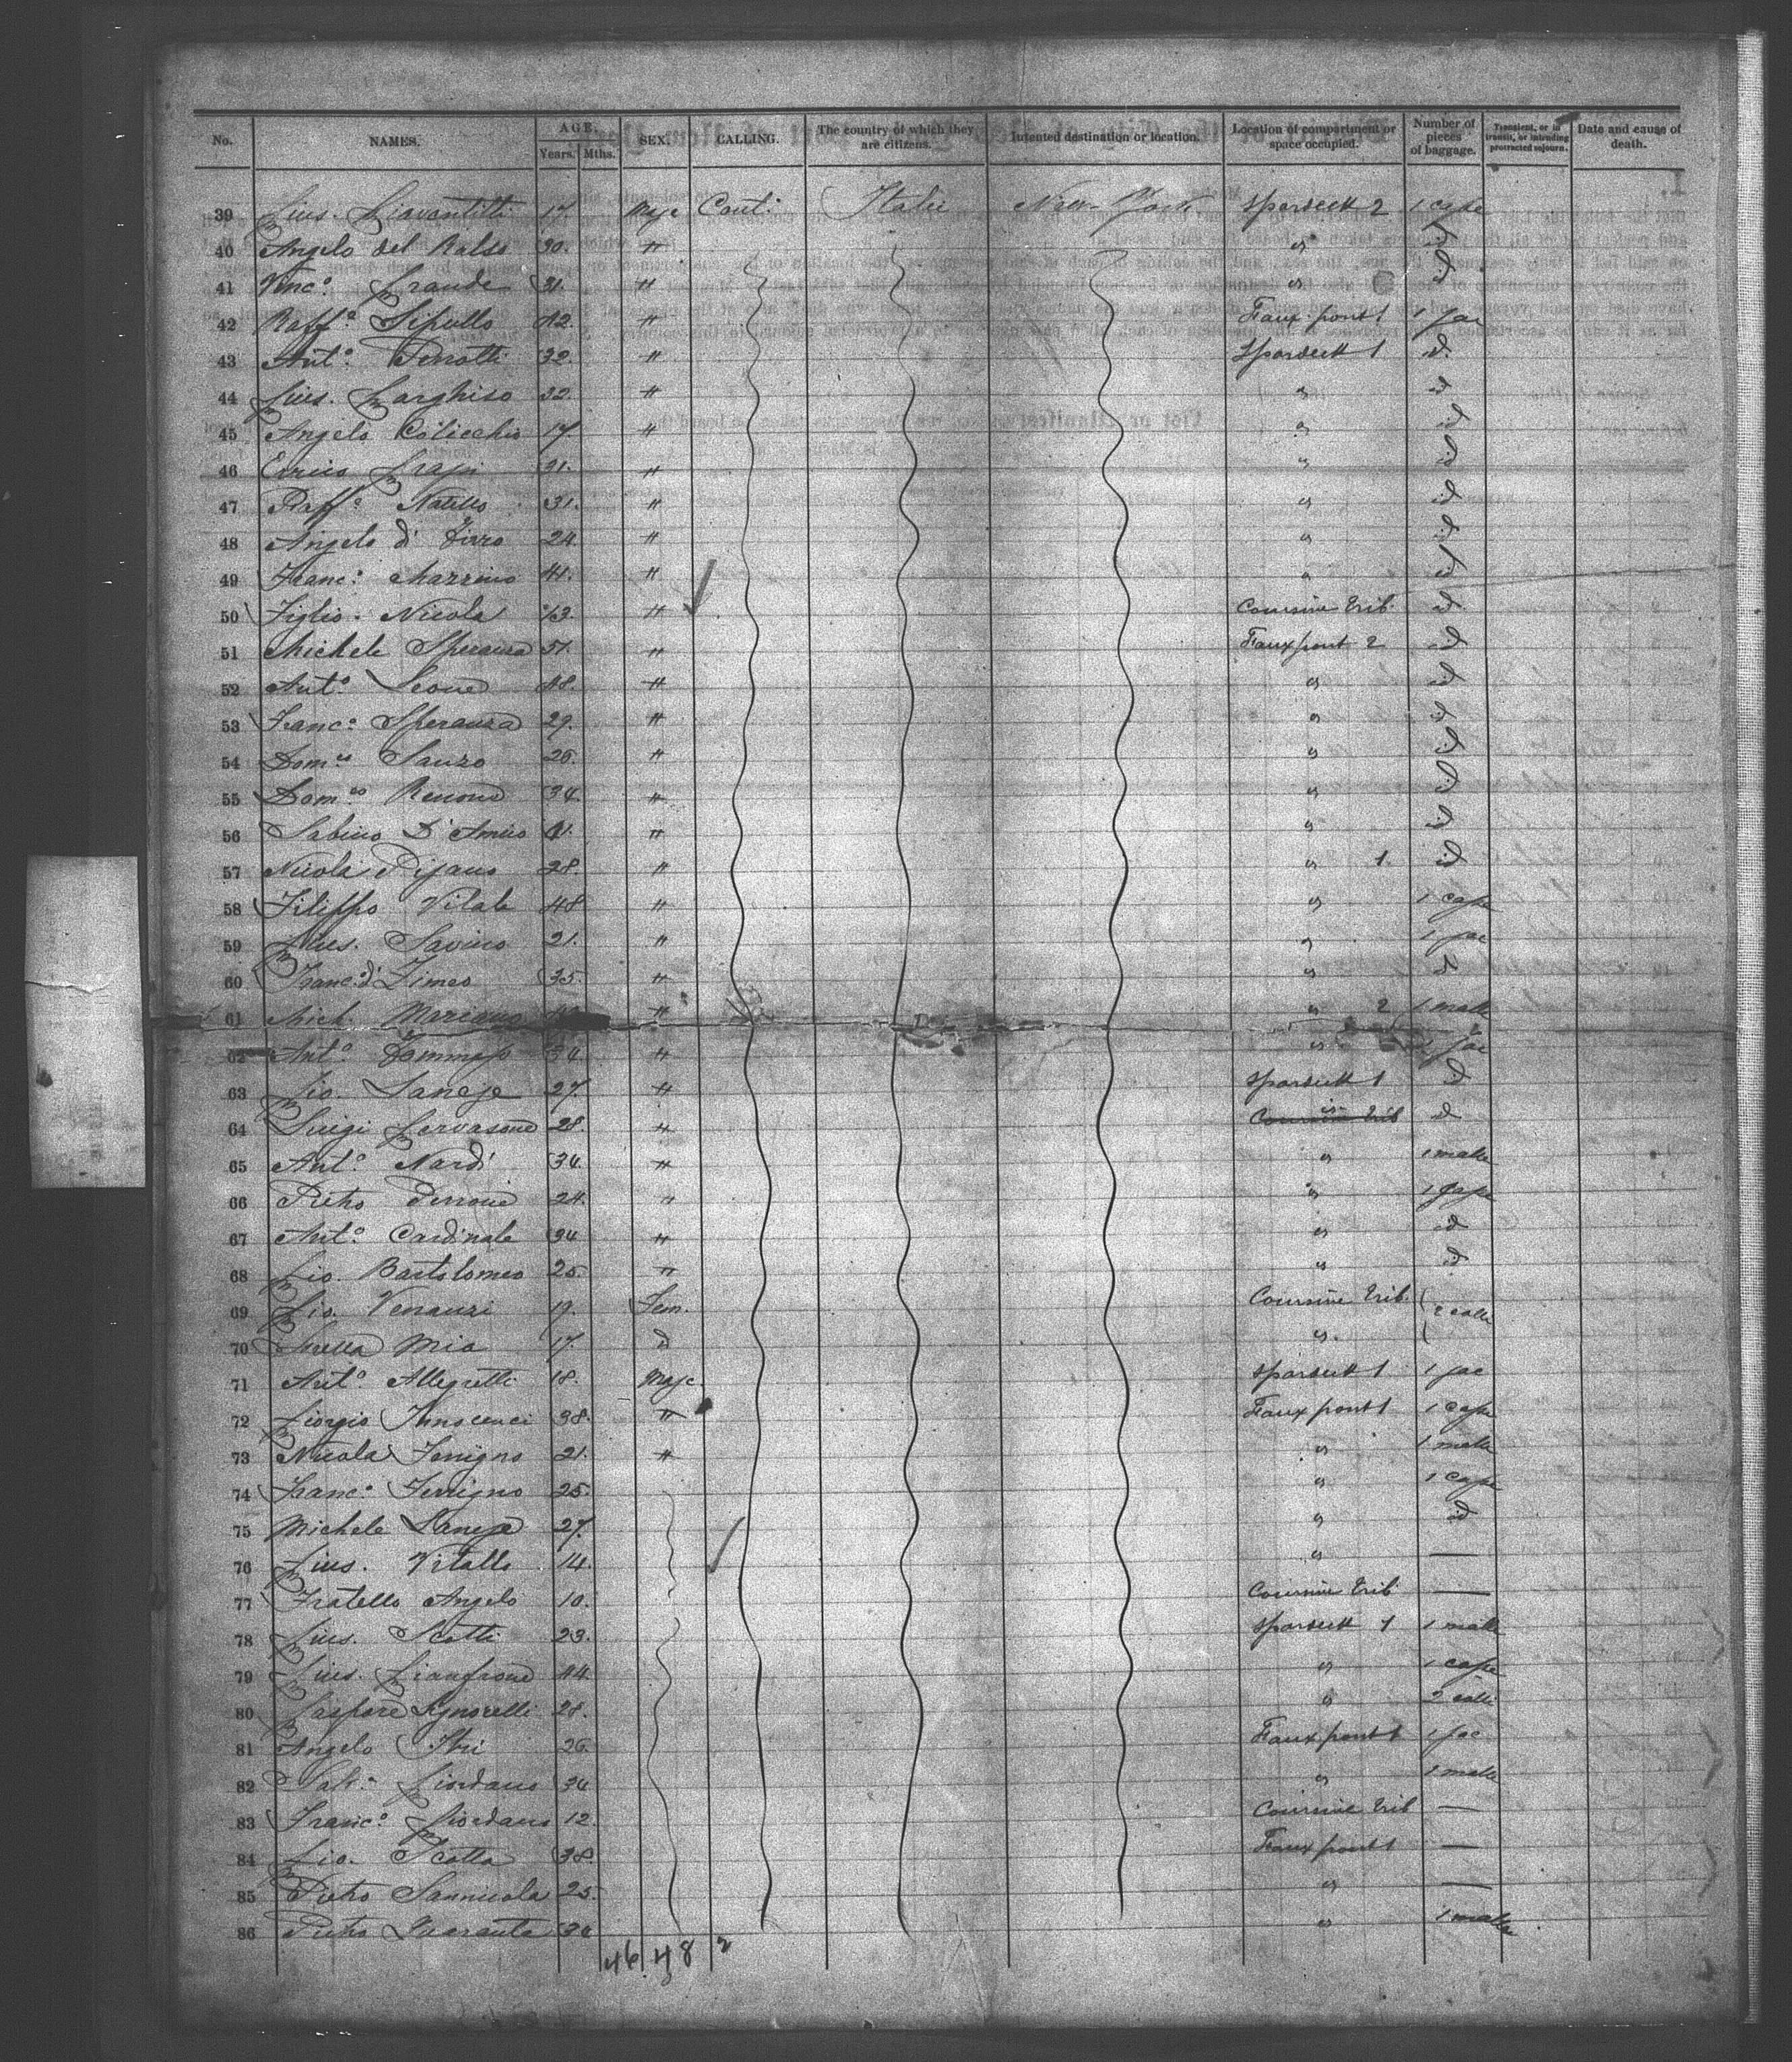 No. NAMES. AGE. Years. Mths. SEX. CALLING. The country of which they are citizens. Intented destination or location. Location of compartment or space occupied. Number of pieces of baggage. Transient, or in transit, or intruding protracted sojourn. Date and cause of death.
39 Gius. 17. Masc Cont. Italie New-York Spardeck 2 1 caße
40 Angelo del 30. " " id
41 Vinc.o Grande 31. " " id
42 Raff.e 42. " Faux pont 1 1 sac
43 Ant.o Perrotti 32. " Spardeck 1 id.
44 Gius. Garghiso 32. " " id
45 Angelo Colicchio 17. " " id
46 Enrico 31. " " id
47 Raff.e Natillo 31. " " id
48 Angelo di 24. " " id
49 Franc.o Marrino 41. " " id
50 Figlio. Nicola 13. " Coursive Trib. id
51 Michele Speranza 51. " Faux pont 2 id
52 Ant.o Leone 48. " " id
53 Franc.o Speranza 29. " " id
54 Dom.co 26. " " id
55 Dom.co 34 " " id
56 Sabino D'Amico " " id
57 Nicola Pisano 28. " " 1. id
58 Filippo Vitale 48 " " 1 caße
59 Gius. Savino 21. " " 1 sac
60 Franc. di 35. " " id
61 Mich. Mariano " " 2 1 malle
62 Ant.o Tommaso 34. " " 1 sac
63 Gio. 27. " Spardeck 1 id
64 Luigi Gervasone 28. " Coursive Trib id
65 Ant.o Nardi 34. " " 1 malle
66 Pietro Perrone 24. " " 1 caße
67 Ant.o Cardinale 34 " " id
68 Gio. Bartolomeo 25. " " id
69 Gio. Venauzi 19. Fem. Coursive Trib. 2 colli
70 Mia 17. d "
71 Ant.o Allegretti 18. Masc. Spardeck 1 1 sac
72 Giorgio Innocenci 38. " Faux pont 1 1 caße
73 Nicola Ferrigno 21. " " 1 malle
74 Franc.o Ferrigno 25. " 1 caße
75 Michele 27. " id
76 Gius. Vitallo 14. " —
77 Fratello Angelo 10. Coursive Trib. —
78 Gius. Scotti 23. Spardeck 1 1 malle
79 Gius. Gianfrone 44. " 1 caße
80 Gaspare Signorelli 28. " 2 colli
81 Angelo 26 Faux pont 1 1 sac
82 Salv.e Giordano 34 " 1 malle
83 Franc.o Giordano 12. Coursive Trib —
84 Gio. Scotta 38. Faux pont 1 —
85 Pietro Sannicola 25. " —
86 Pietro Quaranta 34 " 1 malle
46. 48 2